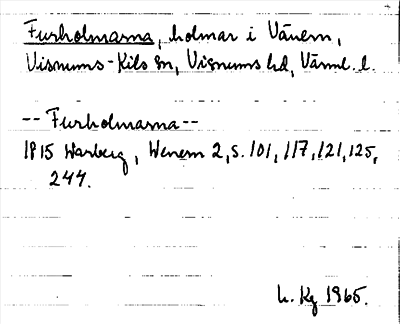 Furholmarna, holmar i Vänern,
Visnums-Kils sn, Visnums hd, Värml. l.
-- Furholmarna --
1815 Warberg, Wenern 2, s. 101, 117, 121, 125,
244.
L. Kg 1965.